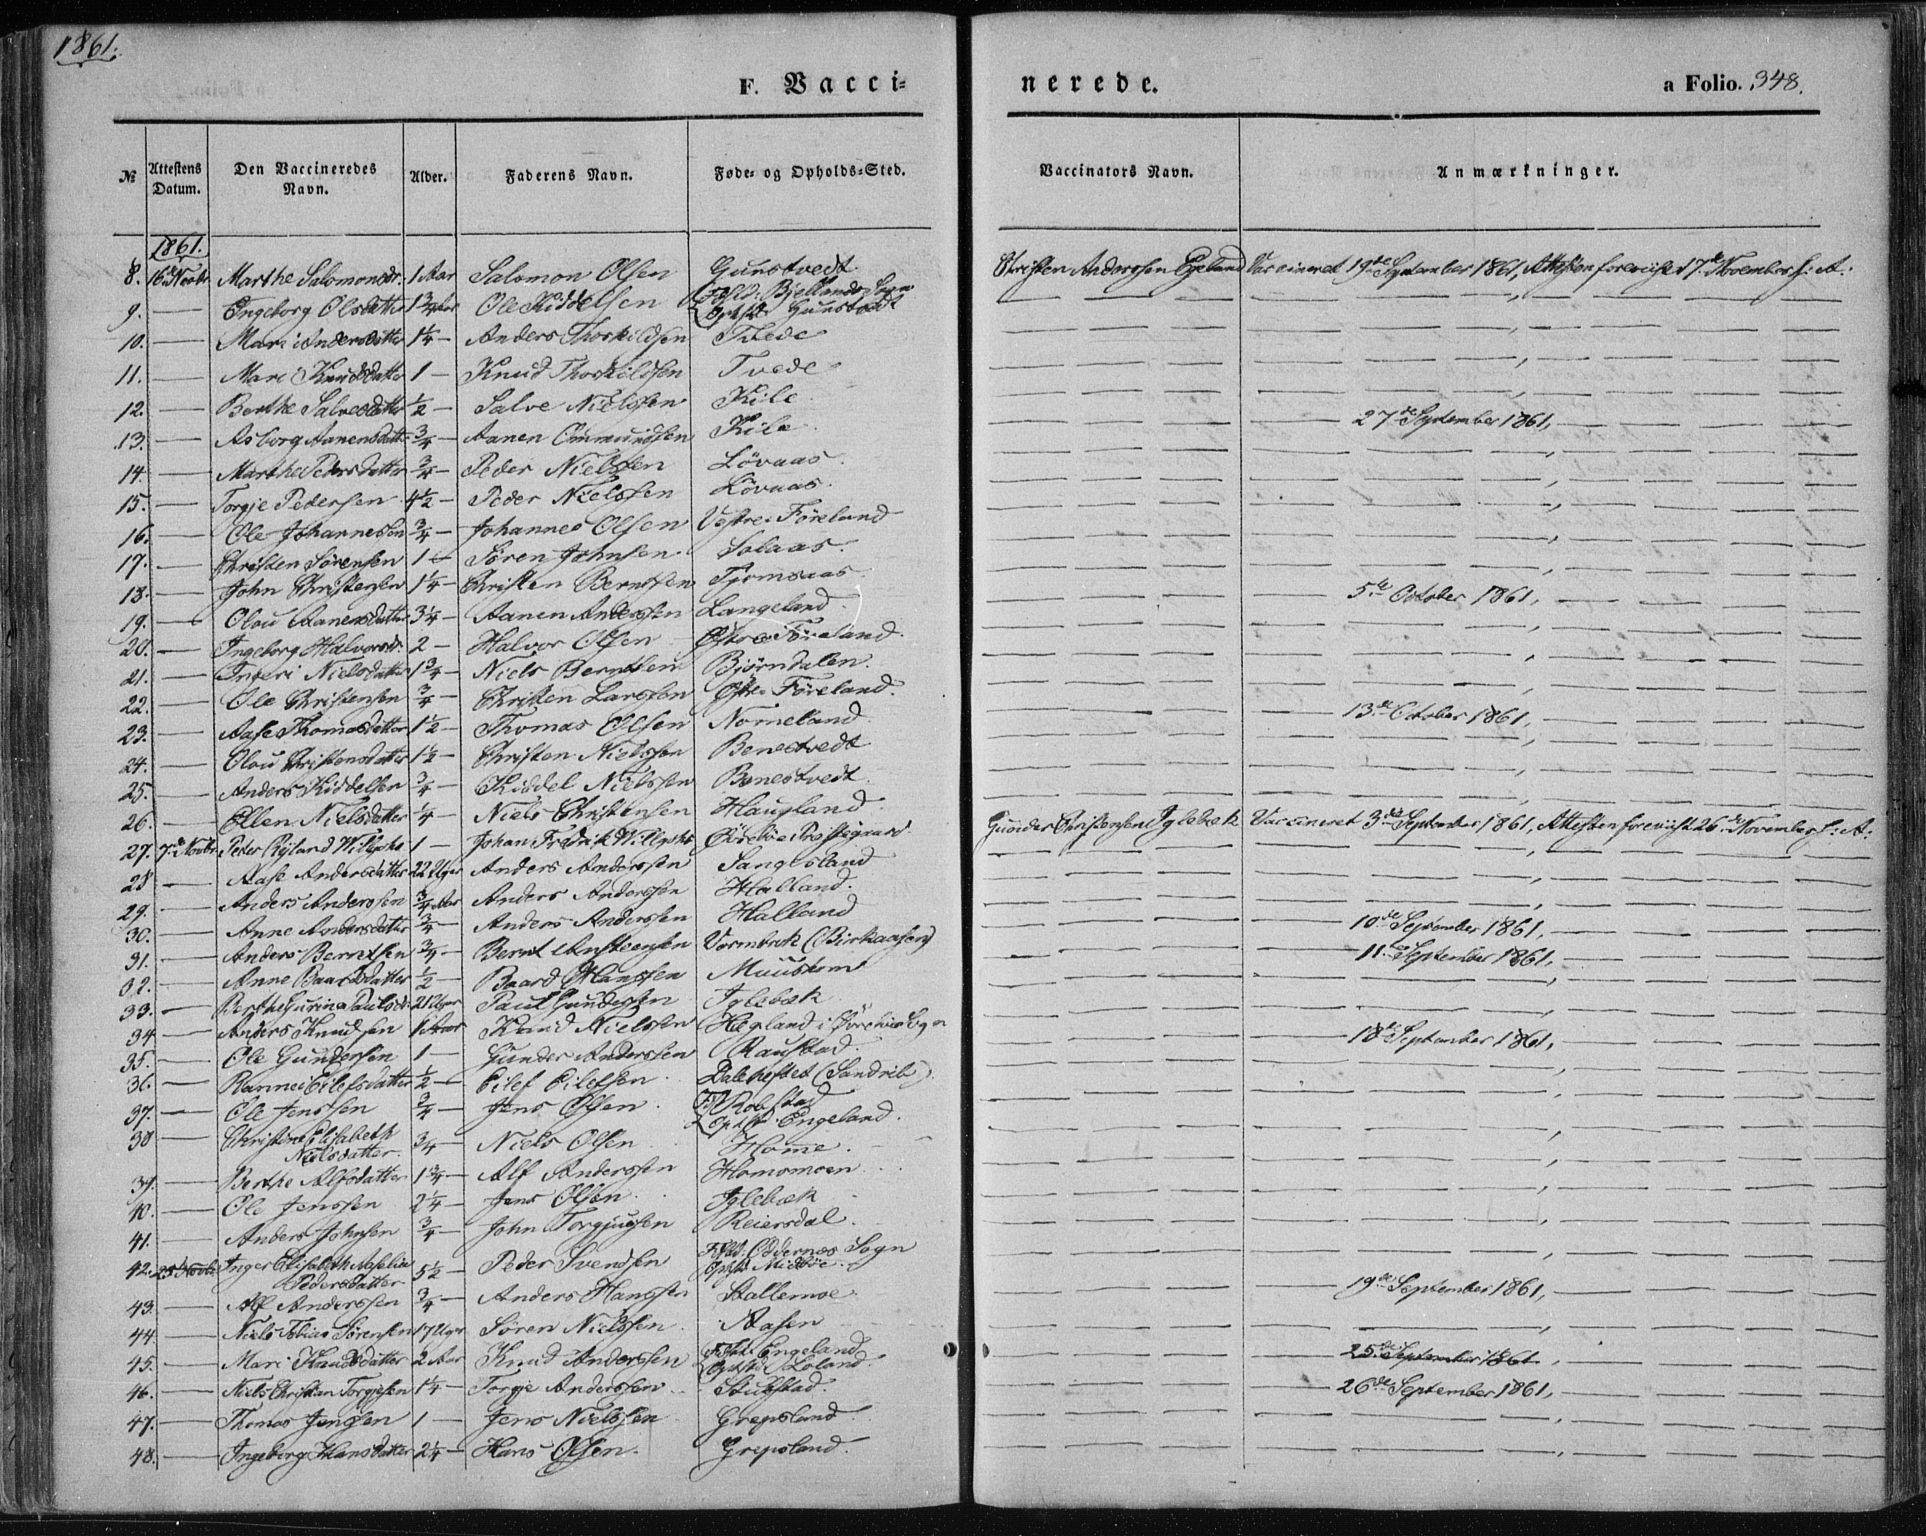 1861.
F. Vacci-
nerede.
a Folio. 348.
№ Attestens Datum. Den Vaccineredes Navn. Alder. Faderens Navn. Føde- og Opholds-Sted. Vaccinators Navn. Anmærkninger.
1861.
8. 16de Novbr Marthe Salomonsdr. 1 Aar Salomon Olsen Gunstvedt Christen Anderssen Egeland Vaccineret 19de September 1861, Attesten foreviist 17de November s: A:
9. — Engeborg Olsdatter 1 3/4 Aar Ole Kiddelsen Fstd: Bjellands Sogn
Opst: Gunstvedt
10. — Mari Andersdatter 1 1/4 — Anders Thorkildsen Tvede
11. — Mari Knudsdatter 1 — Knud Thorkildsen Tvede
12. — Berthe Salvesdatter 1/2 — Salve Nielssen Kile
13. — Asborg Aanensdatter 3/4 — Aanen Ommundsen Kile — 27de September 1861, —
14. — Marthe Pedersdatter 3/4 — Peder Nielssen Lövaas
15. — Torgje Pedersen 4 1/2 — Peder Nielssen Lövaas.
16. — Ole Johannessen 3/4 — Johannes Olsen Vestre Föreland
17. — Christen Sörensen 1 — Sören Johnsen Solaas.
18. — John Christensen 1 1/4 — Christen Berntsen Tjomsaas
19. — Olou Aanensdatter 3 1/4 — Aanen Anderssen Langeland — 5te October 1861, —
20. — Ingeborg Halvorsdr. 2 — Halvor Olsen Østre Föreland.
21. — Ingeri Nielsdatter 1 3/4 — Niels Berntsen Björndalen.
22. — Ole Christensen 3/4 — Christen Larssen Østre Föreland.
23. — Aase Thomasdatter 1 1/2 — Thomas Olsen Nomeland — 13de October 1861, —
24. — Olou Christensdatter 1 1/2 — Christen Nielssen Benestvedt
25. — Anders Kiddelsen 3/4 — Kiddel Nielssen Benestvedt
26. — Ellen Nielsdatter 1/4 — Niels Christensen Haugland
27. 7de Novbr. Peter Johan Fredrik Gunder Christensen Iglebæk Vaccineret 3de September 1861, Attesten foreviist 26de November s: A:
28 — Aase Andersdatter 22 Uger Anders Anderssen Sangesland
29. — Anders Anderssen 3/4 Aar Anders Anderssen Halland.
30. — Anne Andersdatter 3/4 — Anders Anderssen Halland
31. — Anders Berntsen 3/4 — Bernt (Birkaasen) — 10de September 1861, —
32. — Anne Baardsdatter 1/2 — Baard Hanssen — 11te September 1861, —
33. — Berthe Gurine Paulsd: 21 Uger Paul Gundersen Iglebæk
34 — Anders Knudsen 1 Aar Knud Nielssen Hegland i Øvrebø Sogn
35. — Ole Gundersen 1 — Gunder Anderssen Raustad. — 18de September 1861, —
36. — Rannei Eilefsdatter 1/2 — Eilef Eilefsen Daleheftet (Sandrib)
37. — Ole Jenssen 3/4 — Jens Olsen. F: Robstad
Opst: Engeland.
38 — Christine Elisabeth
Nielsdatter. 3/4 — Niels Olsen Home.
39. — Berthe Alfsdatter 1 3/4 — Alf Anderssen Homsmoen
40. — Ole Jenssen 2 1/4 — Jens Olsen Iglebæk
41. — Anders Johnsen 3/4 — John Torgjussen Reiersdal.
42. 25 Novbr Inger Elisabeth Aselia
Pedersdatter 5 1/2 — Peder Svendsen Fstd: Oddernæs Sogn
Opst: Midbøe.
43. — Alf Anderssen 3/4 — Anders Hanssen Stallemoe — 19de September 1861, —
44. — Niels Tobias Sørensen 17 Uger Sören Nielssen Aasen
45. — Mari Knudsdatter 2 Aar Knud Anderssen Fstd: Engeland
Opst: Loland. — 25de September 1861 —
46. — Niels Christian Torgjesen 1 1/4 — Torgje Anderssen Stubstad. — 26de September 1861, —
47. — Thomas Jenssen 1 — Jens Nielssen Grepsland.
48. — Ingeborg Hansdatter 2 1/4 — Hans Olsen. Grepsland.